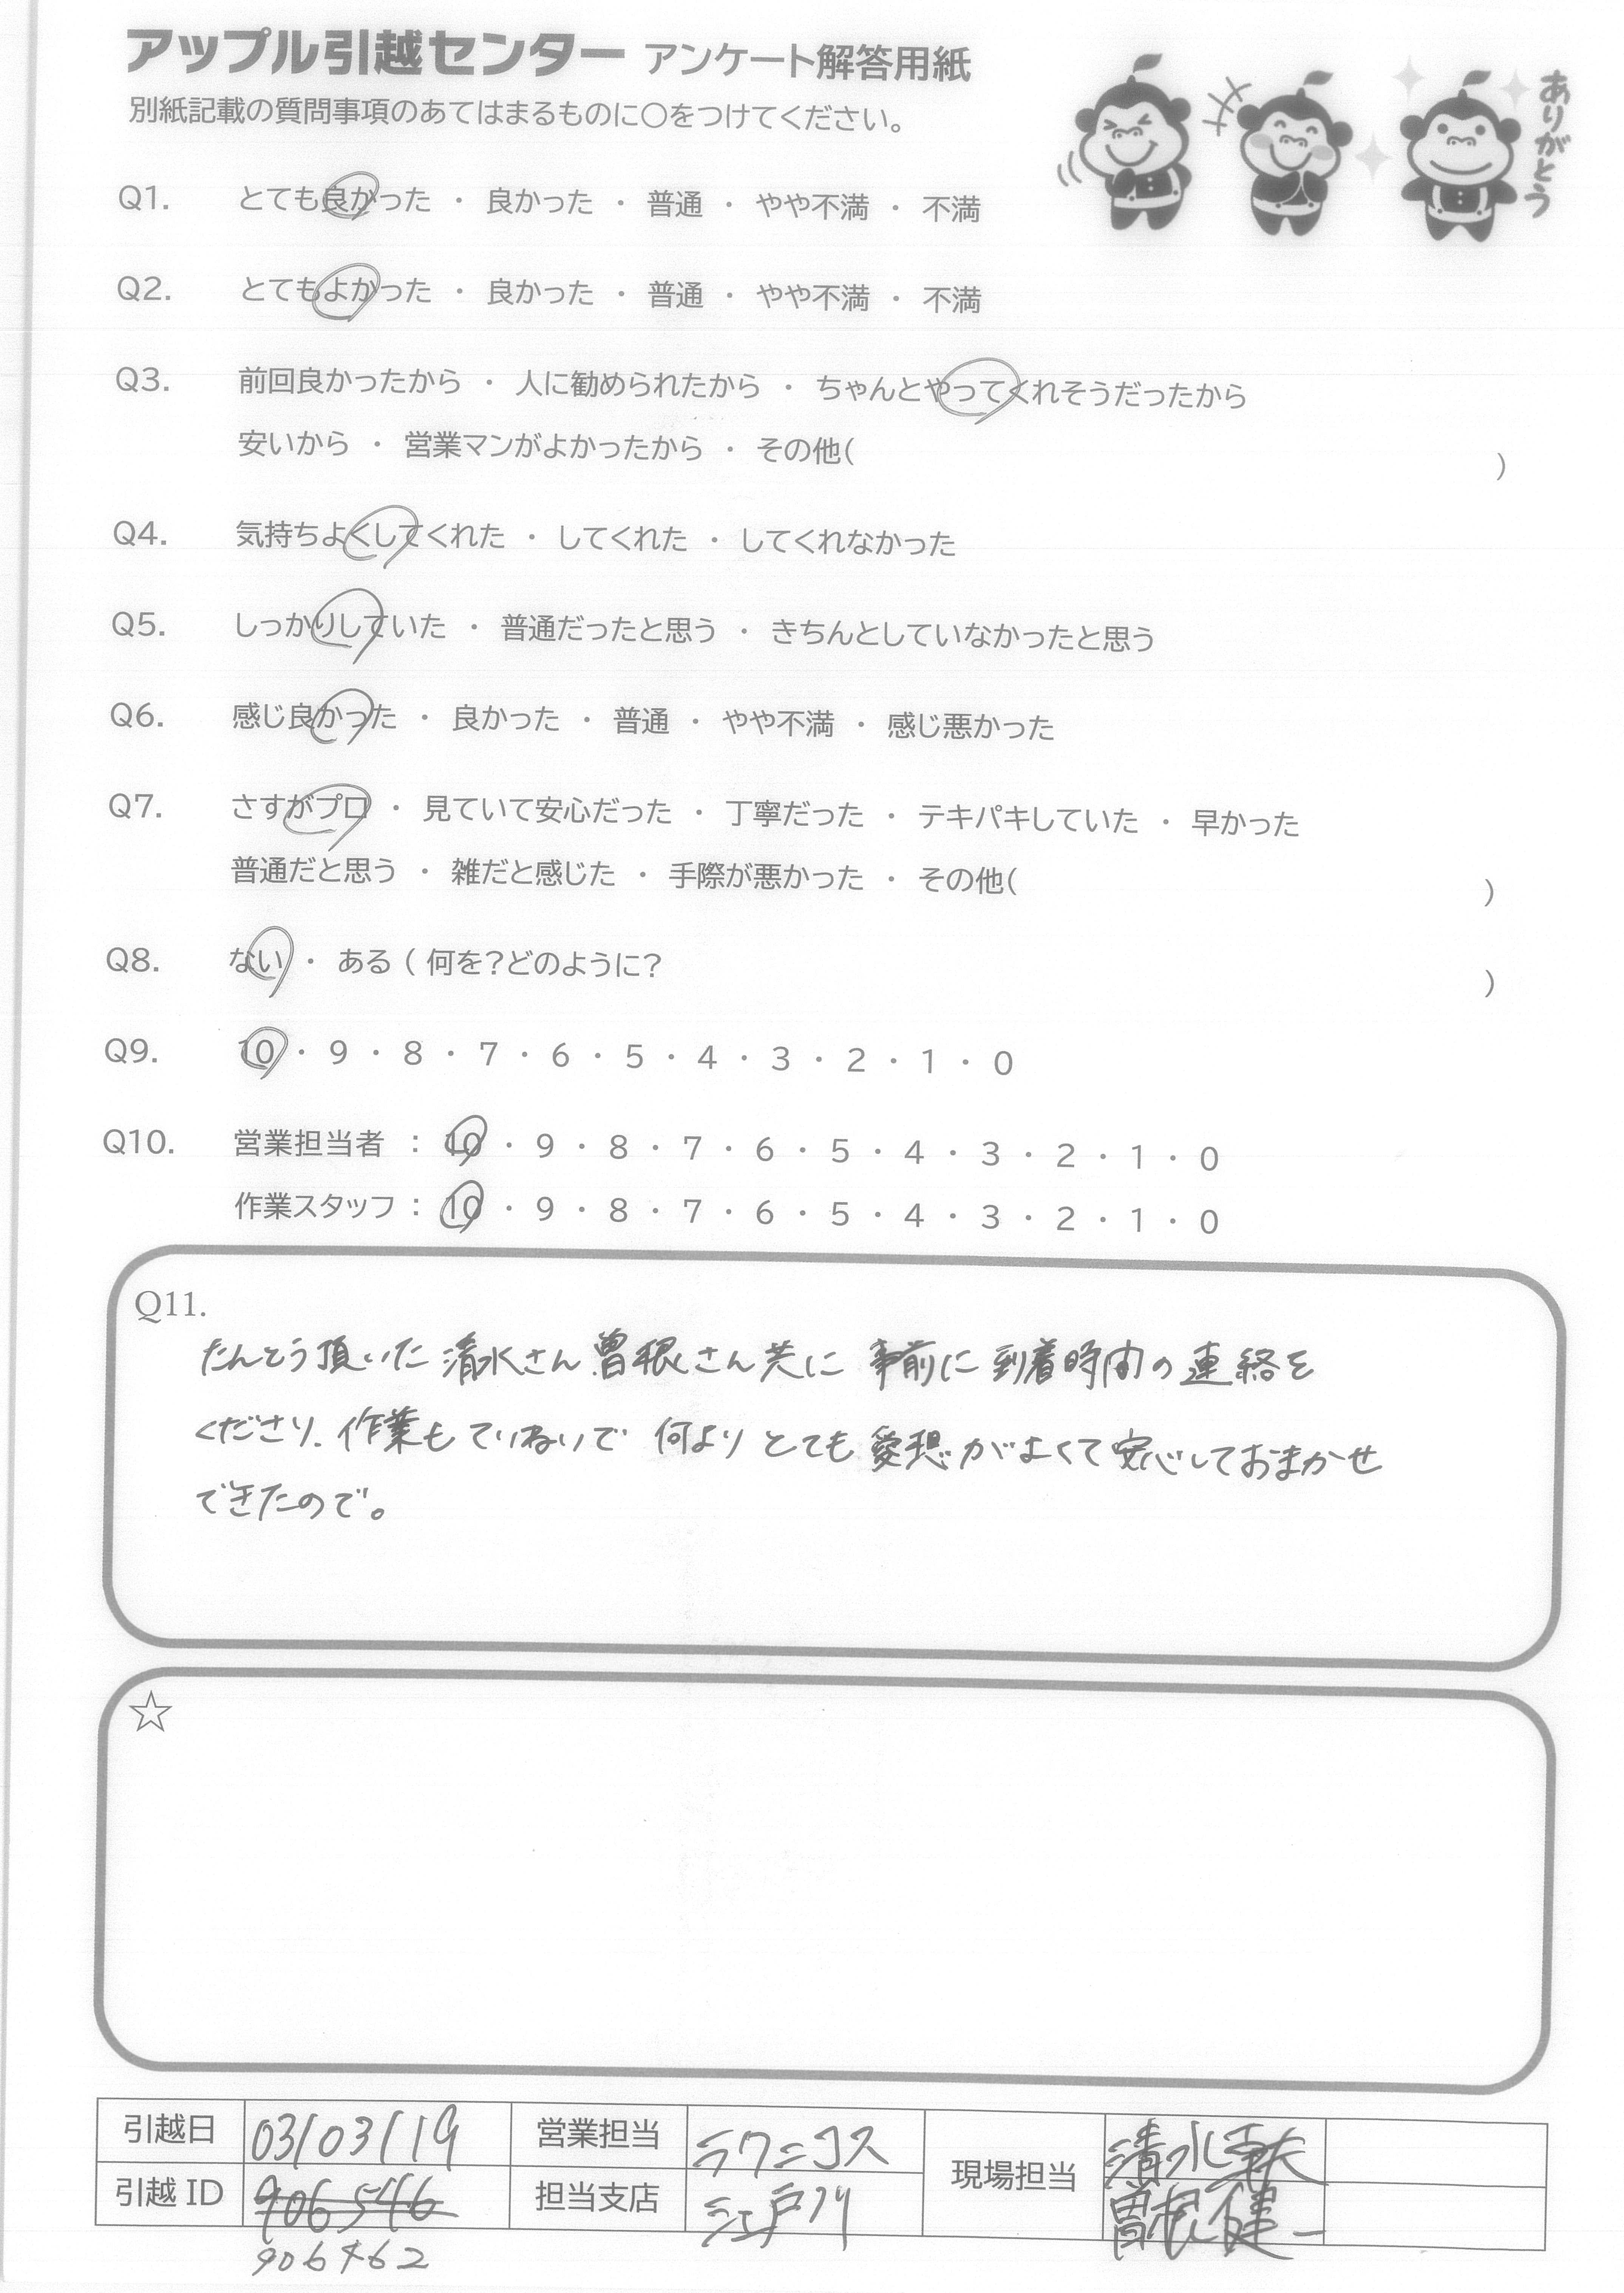 アップル引越センター アンケート解答用紙
別紙記載の質問事項のあてはまるものに〇をつけてください。
ありがとう
Q1. とても良かった ・ 良かった ・ 普通 ・ やや不満 ・ 不満
Q2. とてもよかった ・ 良かった ・ 普通 ・ やや不満 ・ 不満
Q3. 前回良かったから ・ 人に勧められたから ・ ちゃんとやってくれそうだったから
安いから ・ 営業マンがよかったから ・ その他( )
Q4. 気持ちよくしてくれた ・ してくれた ・ してくれなかった
Q5. しっかりしていた ・ 普通だったと思う ・ きちんとしていなかったと思う
Q6. 感じ良かった ・ 良かった ・ 普通 ・ やや不満 ・ 感じ悪かった
Q7. さすがプロ ・ 見ていて安心だった ・ 丁寧だった ・ テキパキしていた ・ 早かった
普通だと思う ・ 雑だと感じた ・ 手際が悪かった ・ その他( )
Q8. ない ・ ある ( 何を?どのように? )
Q9. 10 ・ 9 ・ 8 ・ 7 ・ 6 ・ 5 ・ 4 ・ 3 ・ 2 ・ 1 ・ 0
Q10. 営業担当者 : 10 ・ 9 ・ 8 ・ 7 ・ 6 ・ 5 ・ 4 ・ 3 ・ 2 ・ 1 ・ 0
作業スタッフ : 10 ・ 9 ・ 8 ・ 7 ・ 6 ・ 5 ・ 4 ・ 3 ・ 2 ・ 1 ・ 0
Q11.
たんとう頂いた 清水さん 曽根さん共に 事前に到着時間の連絡を
くださり、作業もていねいで 何より とても愛想がよくて安心しておまかせ
できたので。
☆
引越日 03/03/19 営業担当 ラワニコス 現場担当 清水
引越 ID 906546 担当支店 江戸川 曽根健一
906462